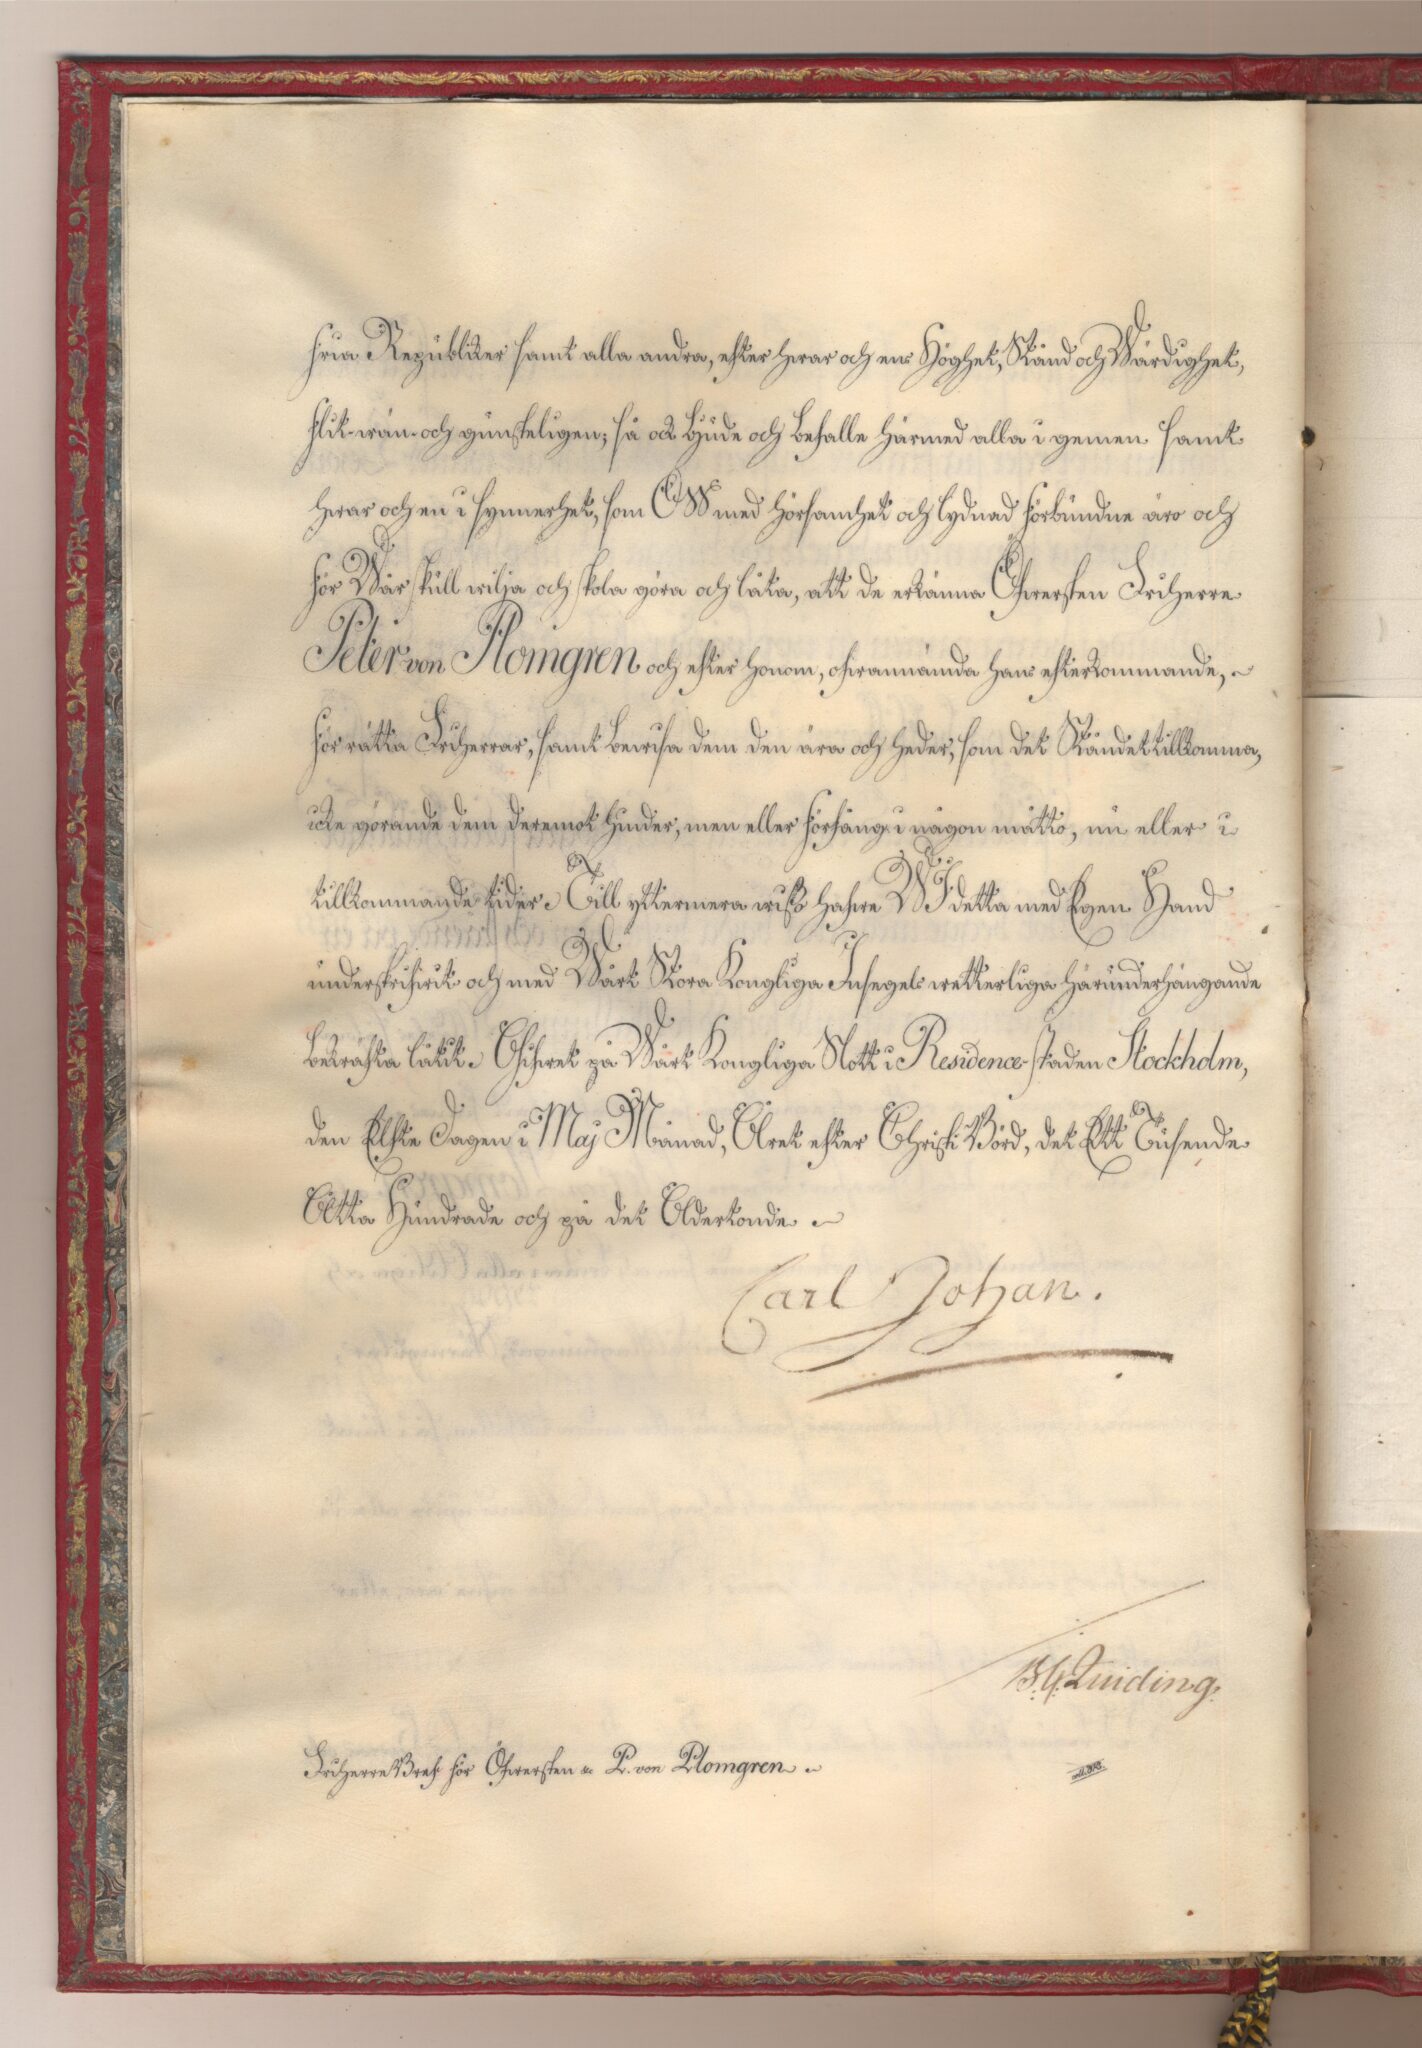 fria Republiker samt alla andra, efter hwar och ens Höghet, Stånd och Wärdighet,
flit-wän-och gunsteligen; så ock bjude och befalle härmed alla i gemen samt
hwar och en i synnerhet, som OSS med hörsamhet och lydnad förbundne äro och
för Wår skull wilja och skola göra och låta, att de erkänna Öfwersten Friherre
Peter von Plomgren och efter honom, ofwannämda hans efterkommande,
för rätta Friherrar, samt bewisa dem den ära och heder, som det Ståndet tillkomma,
icke görande dem deremot hinder, men eller förfång i någon måtto, nu eller i
tillkommande tider. Till yttermera wisso hafwe WI detta med Egen Hand
underskrifwit och med Wårt Stora Kongliga Insegels wetterliga härunderhängande
bekräfta låtit. Gifwet på Wårt Kongliga Slott i Residence-staden Stockholm,
den Elfte Dagen i Maj Månad, Året efter Christi Börd, det Ett Tusende
Åtta Hundrade och på det Adertonde.
Carl Johan.
B. G. Quiding.
FriherreBref för Öfwersten &c P. von Plomgren.